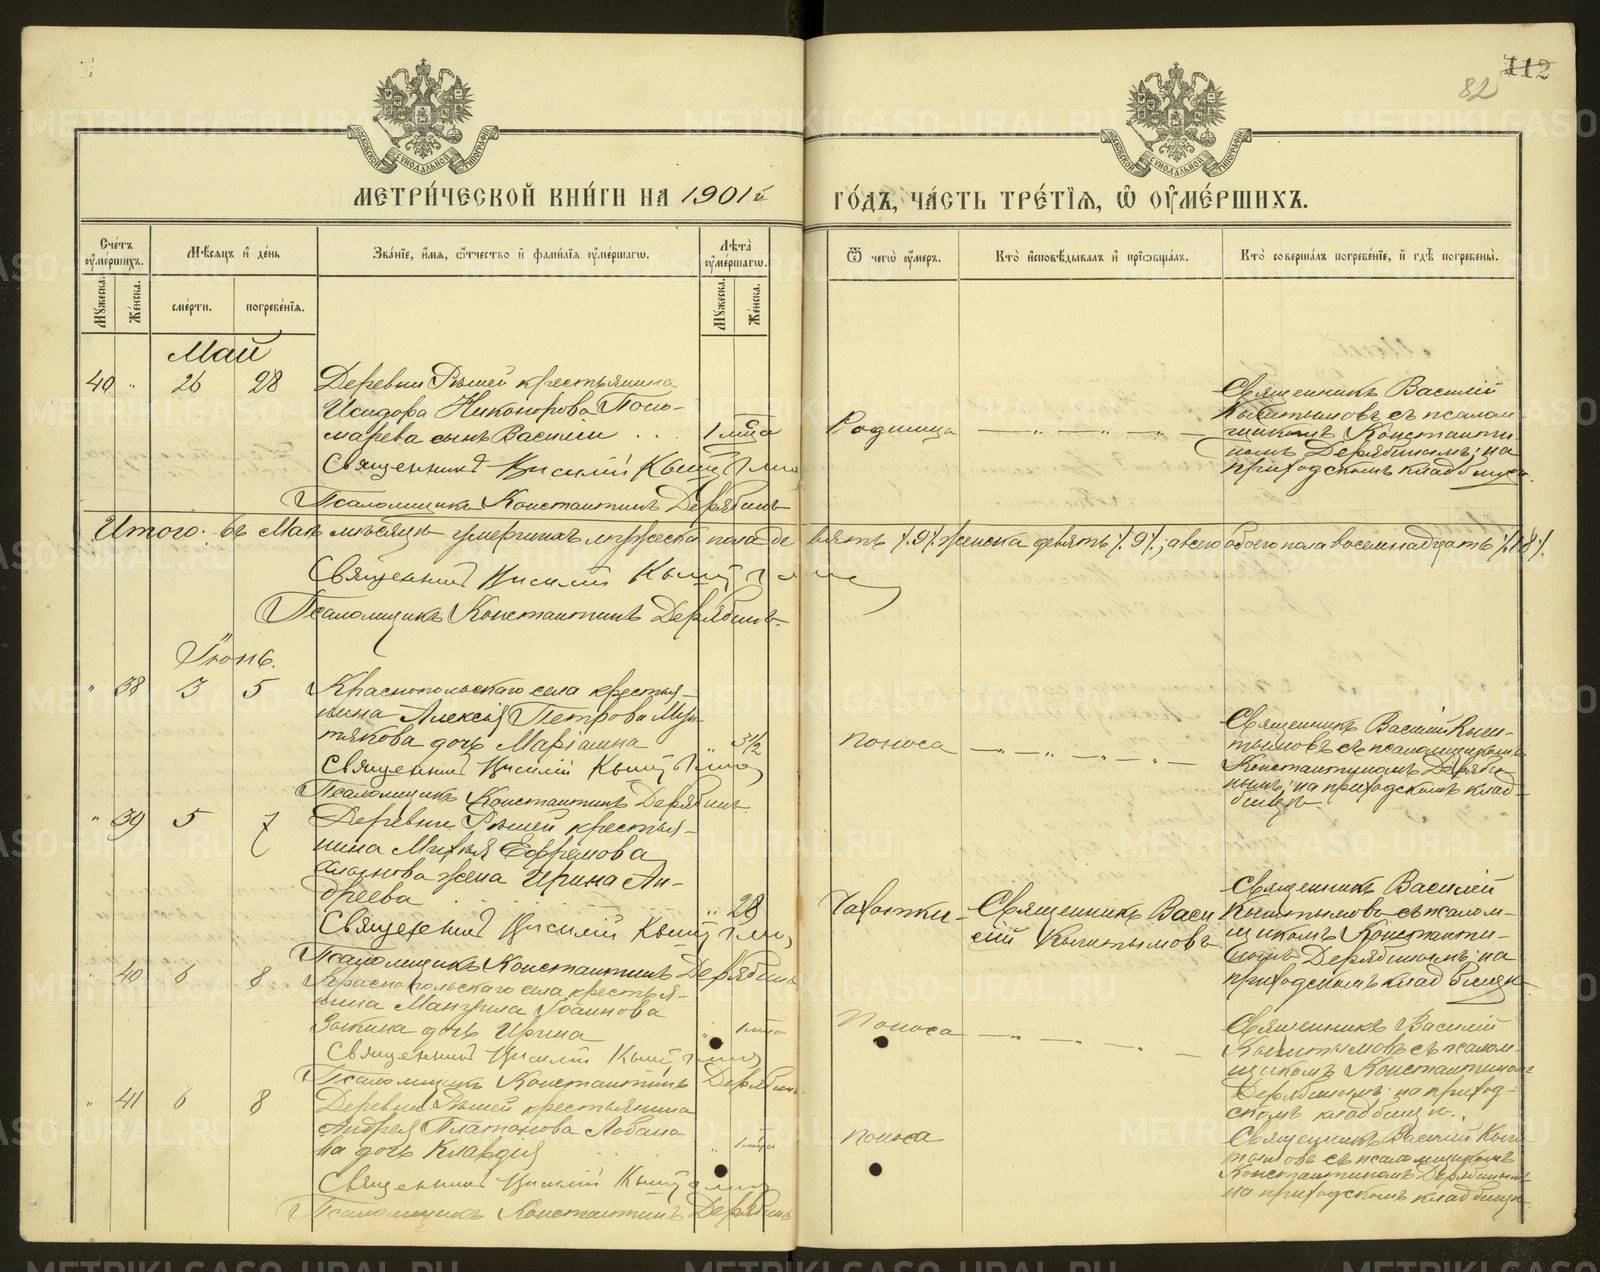 112
82
МЕТРИ́ЧЕСКОЙ КНИ́ГИ НА 1901й ГО́ДЪ, ЧА́СТЬ ТРЕ́ТІѦ, Ѿ ОУМЕ́РШИХЪ.
Сче́тъ оуме́ршихъ.
Мѣ́сяцъ и де́нь
Зва́нїе, и́мя, ѻ́тчество и фами́лїя оуме́ршагѡ.
Лѣта̀ оуме́ршагѡ.
Ѿ чегѡ̀ оу́меръ.
Кто̀ и҆сповѣ́дывалъ и҆ прїѡбща́лъ.
Кто̀ соверша́лъ погребе́нїе, и҆ гдѣ̀ погребены̀.
Мꙋ́жеска.
Же́нска.
сме́рти.
погребе́нїя.
Мꙋ́жеска.
Же́нска.
Май
40 " 26 28
Деревни крестьянина
Исидора Никонорова Поно-
марева сынъ Василій 1 мѣся
Священникъ Василій Кыштымовъ
Псаломщикъ Константинъ Дерябинъ
Родимца
Священникъ Василій
Кыштымовъ съ псалом-
щикомъ Константи-
номъ Дерябинымъ; на
приходскомъ кладбищѣ.
Итого: въ Маѣ мѣсяцѣ умершихъ мужеска пола девять /.9/. женска девять /.9/.; а всего обоего пола восемнадцать /.18./.
Священникъ Василій Кыштымовъ
Псаломщикъ Константинъ Дерябинъ.
Іюнь.
" 38 3 5
Краснопольскаго села крестья-
нина Алексія Петрова
дочь Маріанна " 3½
Священникъ Василій Кыштымовъ
Псаломщикъ Константинъ Дерябинъ
поноса
Священникъ Василій Кыш-
тымовъ съ псаломщикомъ
Константиномъ Деряби-
нымъ; на приходскомъ клад-
бищѣ.
" 39 5 7
Деревни крестья-
нина Михея Ефремова
жена Ирина Ан-
дреева " 28
Священникъ Василій Кыштымовъ
Псаломщикъ Константинъ Дерябинъ
Чахотки
Священникъ Васи
лій Кыштымовъ
Священникъ Василій
Кыштымовъ съ псалом-
щикомъ Константи-
номъ Дерябинымъ; на
приходскомъ кладбищѣ
" 40 6 8
Краснопольскаго села крестья-
нина Іоаннова
дочь Ирина " 1 мѣся
Священникъ Василій Кыштымовъ
Псаломщикъ Константинъ Дерябинъ
Поноса
Священникъ Василій
Кыштымовъ съ псалом-
щикомъ Константиномъ
Дерябинымъ; на приход-
скомъ кладбищѣ.
" 41 6 8
Деревни крестьянина
Андрея Платонова Лобано
ва дочь Клавдія " 1 мѣся
Священникъ Василій Кыштымовъ
Псаломщикъ Константинъ Дерябинъ
поноса
Священникъ Василій Кыш
тымовъ съ псаломщикомъ
Константиномъ Дерябинымъ
на приходскомъ кладбищѣ
METRIKI.GASO-URAL.RU